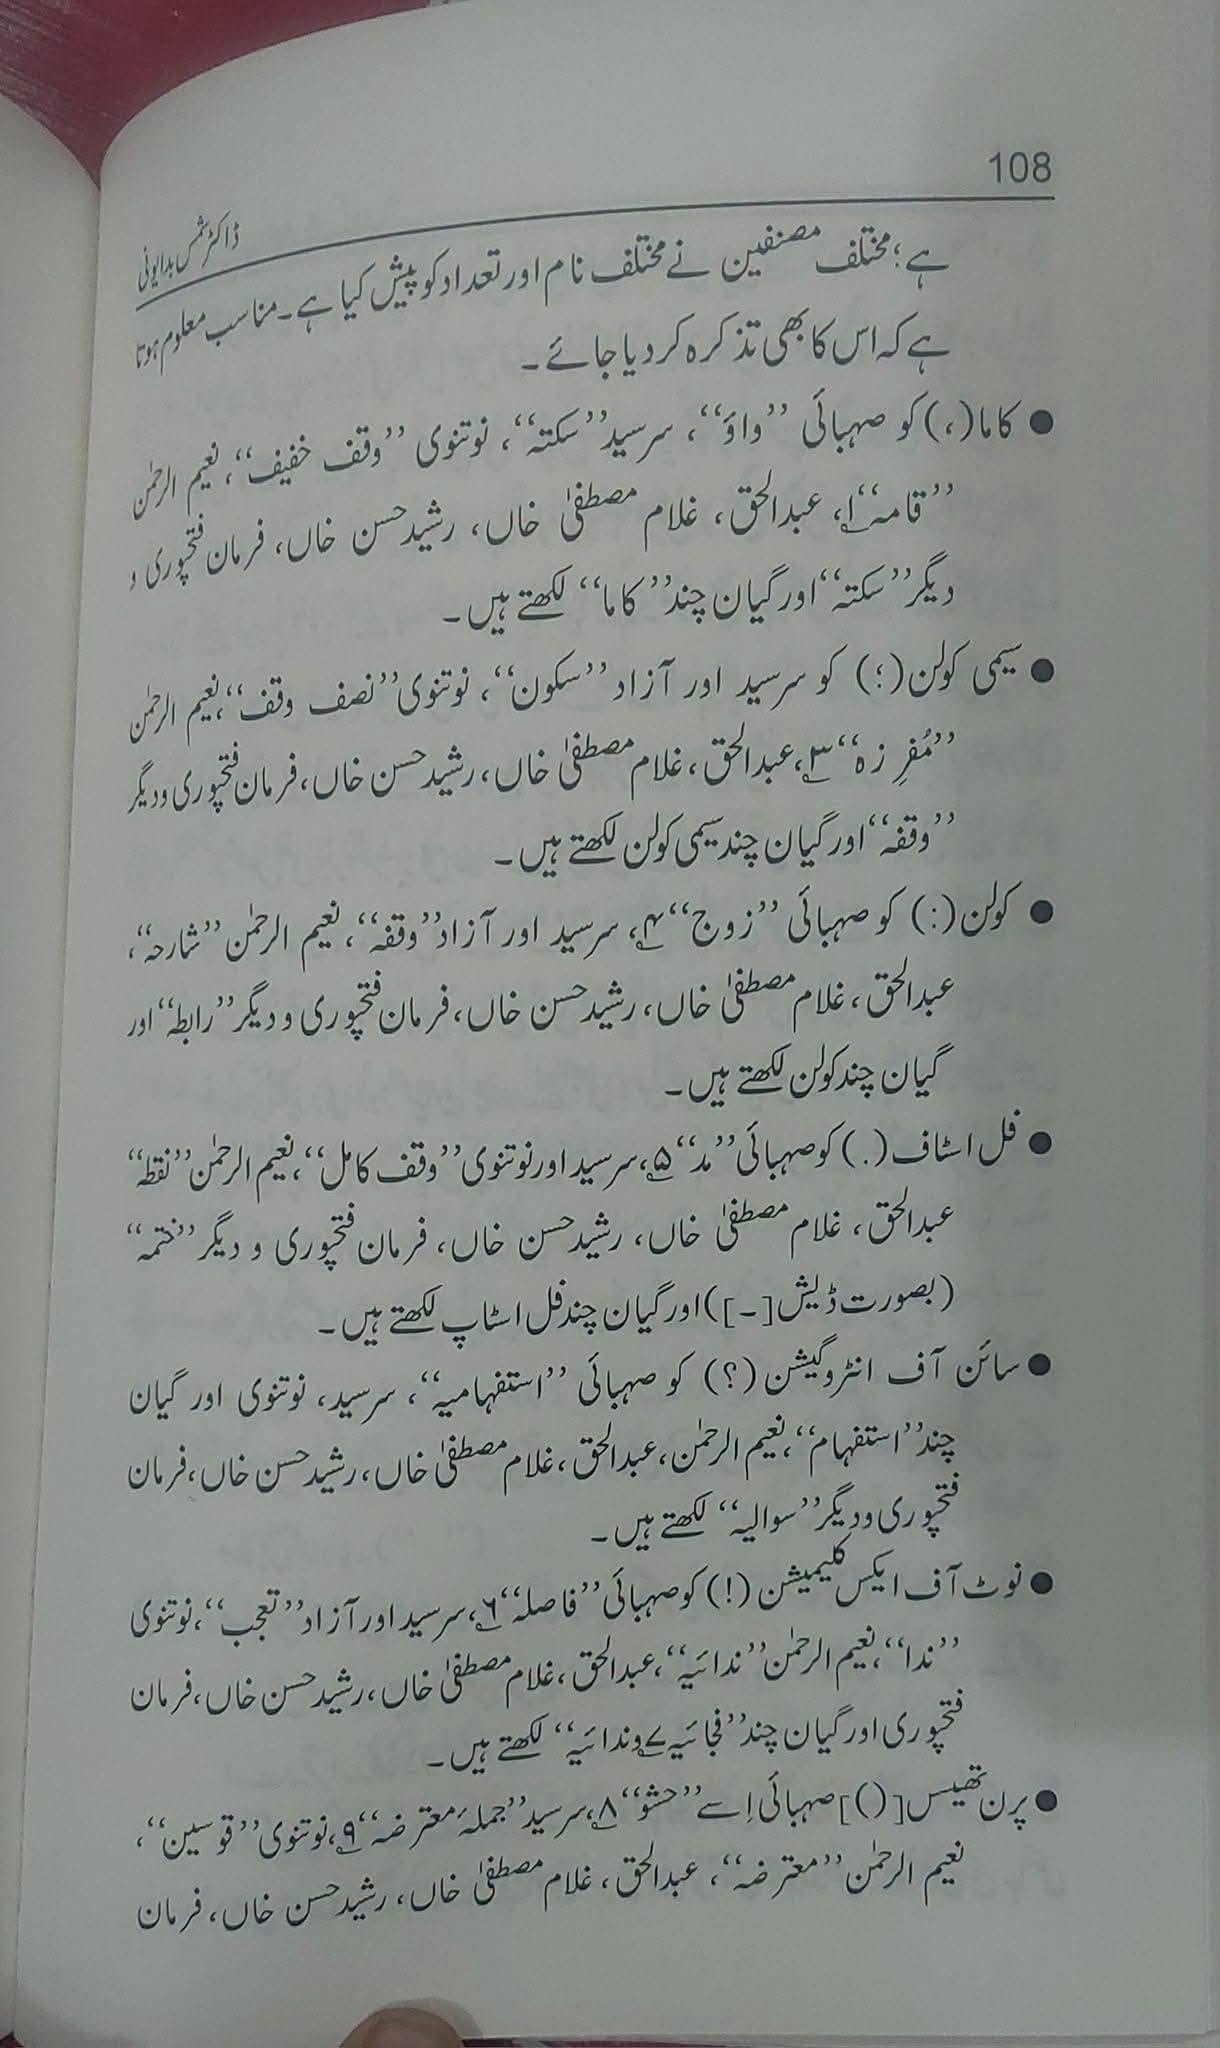 108
ڈاکٹر شمس بدایونی
ہے؛ مختلف مصنفین نے مختلف نام اور تعداد کو پیش کیا ہے۔ مناسب معلوم ہوتا
ہے کہ اس کا بھی تذکرہ کر دیا جائے۔
● کاما (،) کو صہبائی ’’واؤ‘‘، سرسید ’’سکتہ‘‘، نوتنوی ’’وقف خفیف‘‘، نعیم الرحمٰن
’’قامہ‘‘۱؎، عبدالحق، غلام مصطفیٰ خاں، رشید حسن خاں، فرمان فتحپوری و
دیگر ’’سکتہ‘‘ اور گیان چند ’’کاما‘‘ لکھتے ہیں۔
● سیمی کولن (؛) کو سرسید اور آزاد ’’سکون‘‘، نوتنوی ’’نصف وقف‘‘، نعیم الرحمٰن
’’مُفرِزہ‘‘۳؎، عبدالحق، غلام مصطفیٰ خاں، رشید حسن خاں، فرمان فتحپوری و دیگر
’’وقفہ‘‘ اور گیان چند سیمی کولن لکھتے ہیں۔
● کولن (:) کو صہبائی ’’زوج‘‘۴؎، سرسید اور آزاد ’’وقفہ‘‘، نعیم الرحمٰن ’’شارحہ‘‘،
عبدالحق، غلام مصطفیٰ خاں، رشید حسن خاں، فرمان فتحپوری و دیگر ’’رابطہ‘‘ اور
گیان چند کولن لکھتے ہیں۔
● فل اسٹاف (.) کو صہبائی ’’مد‘‘۵؎، سرسید اور نوتنوی ’’وقف کامل‘‘، نعیم الرحمٰن ’’نقطہ‘‘
عبدالحق، غلام مصطفیٰ خاں، رشید حسن خاں، فرمان فتحپوری و دیگر ’’ختمہ‘‘
(بصورت ڈیش [۔]) اور گیان چند فل اسٹاپ لکھتے ہیں۔
● سائن آف انٹروگیشن (؟) کو صہبائی ’’استفہامیہ‘‘، سرسید، نوتنوی اور گیان
چند ’’استفہام‘‘، نعیم الرحمٰن، عبدالحق، غلام مصطفیٰ خاں، رشید حسن خاں، فرمان
فتحپوری و دیگر ’’سوالیہ‘‘ لکھتے ہیں۔
● نوٹ آف ایکس کلیمیشن (!) کو صہبائی ’’فاصلہ‘‘۶؎، سرسید اور آزاد ’’تعجب‘‘، نوتنوی
’’ندا‘‘، نعیم الرحمٰن ’’ندائیہ‘‘، عبدالحق، غلام مصطفیٰ خاں، رشید حسن خاں، فرمان
فتحپوری اور گیان چند ’’فجائیہ۷؎ و ندائیہ‘‘ لکھتے ہیں۔
● پرن تھیسس [()] صہبائی اِسے ’’حشو‘‘۸؎، سرسید ’’جملۂ معترضہ‘‘۹؎، نوتنوی ’’قوسین‘‘،
نعیم الرحمٰن ’’معترضہ‘‘، عبدالحق، غلام مصطفیٰ خاں، رشید حسن خاں، فرمان